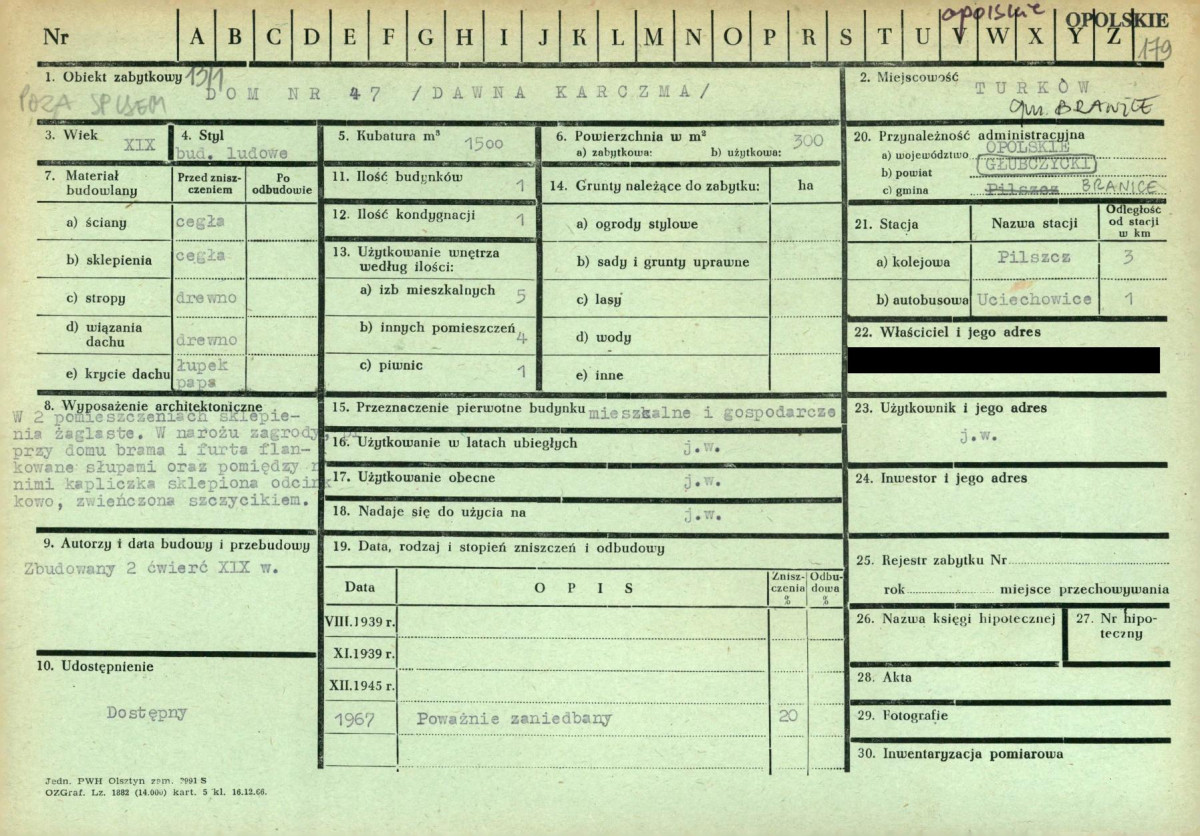 opolskie
Nr A B C D E F G H I J K L M N O P R S T U V W X Y Z OPOLSKIE
179
1. Obiekt zabytkowy 13/1
POZA SPISEM
DOM NR 47 /DAWNA KARCZMA/
2. Miejscowość
TURKÓW
gm. BRANICE
3. Wiek XIX
4. Styl
bud. ludowe
5. Kubatura m³ 1500
6. Powierzchnia w m²
a) zabytkowa: b) użytkowa: 300
7. Materiał budowlany
Przed zniszczeniem
Po odbudowie
a) ściany cegła
b) sklepienia cegła
c) stropy drewno
d) wiązania dachu drewno
e) krycie dachu łupek papa
8. Wyposażenie architektoniczne
W 2 pomieszczeniach sklepie-
nia żaglaste. W narożu zagrody,
przy domu brama i furta flan-
kowane słupami oraz pomiędzy
nimi kapliczka sklepiona odcink
kowo, zwieńczona szczycikiem.
9. Autorzy i data budowy i przebudowy
Zbudowany 2 ćwierć XIX w.
10. Udostępnienie
Dostępny
11. Ilość budynków 1
12. Ilość kondygnacji 1
13. Użytkowanie wnętrza
według ilości:
a) izb mieszkalnych 5
b) innych pomieszczeń 4
c) piwnic 1
14. Grunty należące do zabytku: ha
a) ogrody stylowe
b) sady i grunty uprawne
c) lasy
d) wody
e) inne
15. Przeznaczenie pierwotne budynku mieszkalne i gospodarcze
16. Użytkowanie w latach ubiegłych j.w.
17. Użytkowanie obecne j.w.
18. Nadaje się do użycia na j.w.
19. Data, rodzaj i stopień zniszczeń i odbudowy
Data OPIS Zniszczenia % Odbudowa %
VIII.1939 r.
XI.1939 r.
XII.1945 r.
1967 Poważnie zaniedbany 20
20. Przynależność administracyjna
a) województwo OPOLSKIE
b) powiat GŁUBCZYCKI
c) gmina Pilszcz BRANICE
21. Stacja Nazwa stacji Odległość od stacji w km
a) kolejowa Pilszcz 3
b) autobusowa Uciechowice 1
22. Właściciel i jego adres
23. Użytkownik i jego adres
j.w.
24. Inwestor i jego adres
25. Rejestr zabytku Nr
rok miejsce przechowywania
26. Nazwa księgi hipotecznej
27. Nr hipo-
teczny
28. Akta
29. Fotografie
30. Inwentaryzacja pomiarowa
Jedn. PWH Olsztyn zam. 2991 S
OZGraf. Lz. 1882 (14.000) kart. 5 kl. 16.12.66.